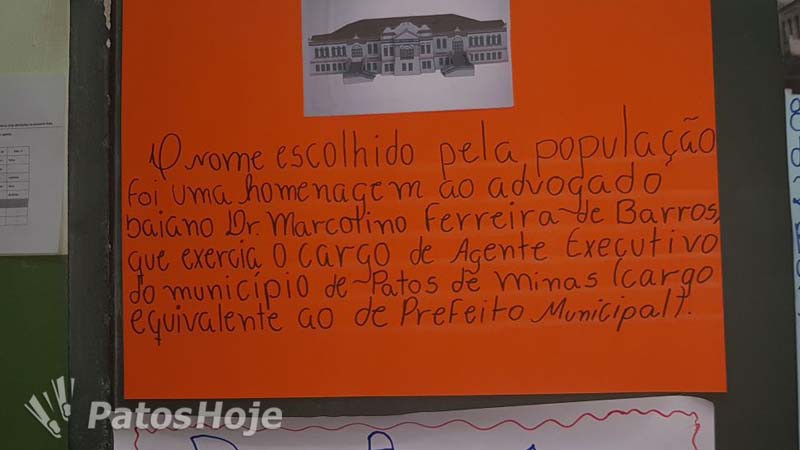 O nome escolhido pela população
foi uma homenagem ao advogado
baiano Dr. Marcolino Ferreira de Barros,
que exercia o cargo de Agente Executivo
do município de Patos de Minas (cargo
equivalente ao de Prefeito Municipal).
PatosHoje